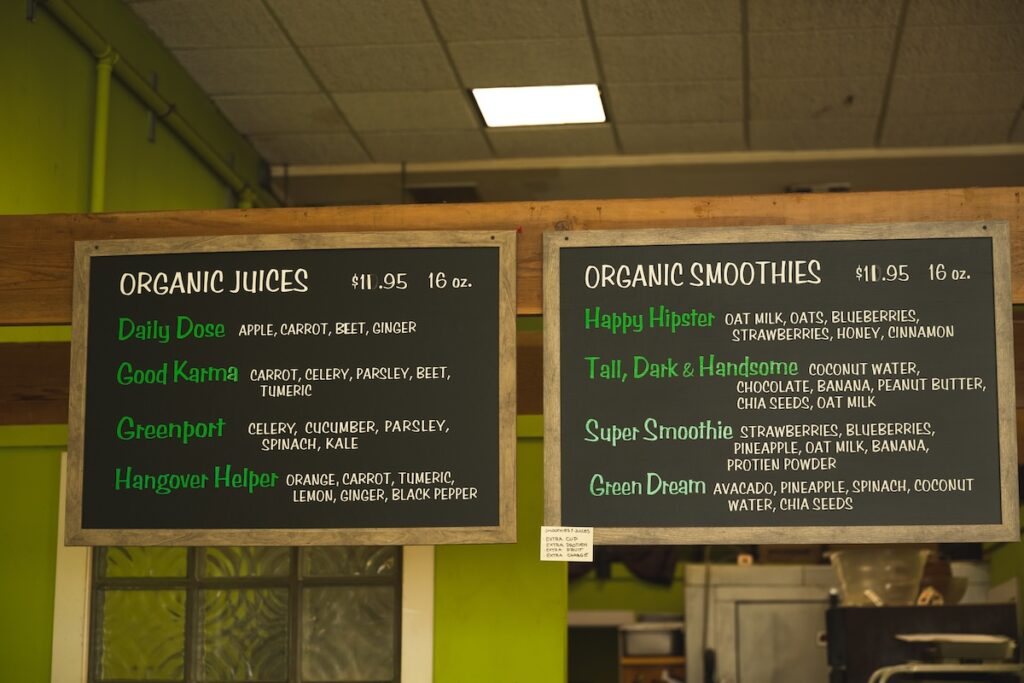 ORGANIC JUICES
.95 16 oz.
Daily Dose APPLE, CARROT, BEET, GINGER
Good Karma CARROT, CELERY, PARSLEY, BEET,
TUMERIC
Greenport CELERY, CUCUMBER, PARSLEY,
SPINACH, KALE
Hangover Helper ORANGE, CARROT, TUMERIC,
LEMON, GINGER, BLACK PEPPER
ORGANIC SMOOTHIES
.95 16 oz.
Happy Hipster OAT MILK, OATS, BLUEBERRIES,
STRAWBERRIES, HONEY, CINNAMON
Tall, Dark & Handsome COCONUT WATER,
CHOCOLATE, BANANA, PEANUT BUTTER,
CHIA SEEDS, OAT MILK
Super Smoothie STRAWBERRIES, BLUEBERRIES,
PINEAPPLE, OAT MILK, BANANA,
PROTIEN POWDER
Green Dream AVACADO, PINEAPPLE, SPINACH, COCONUT
WATER, CHIA SEEDS
EXTRA CUP
EXTRA PROTIEN
EXTRA FRUIT
EXTRA CHARGE